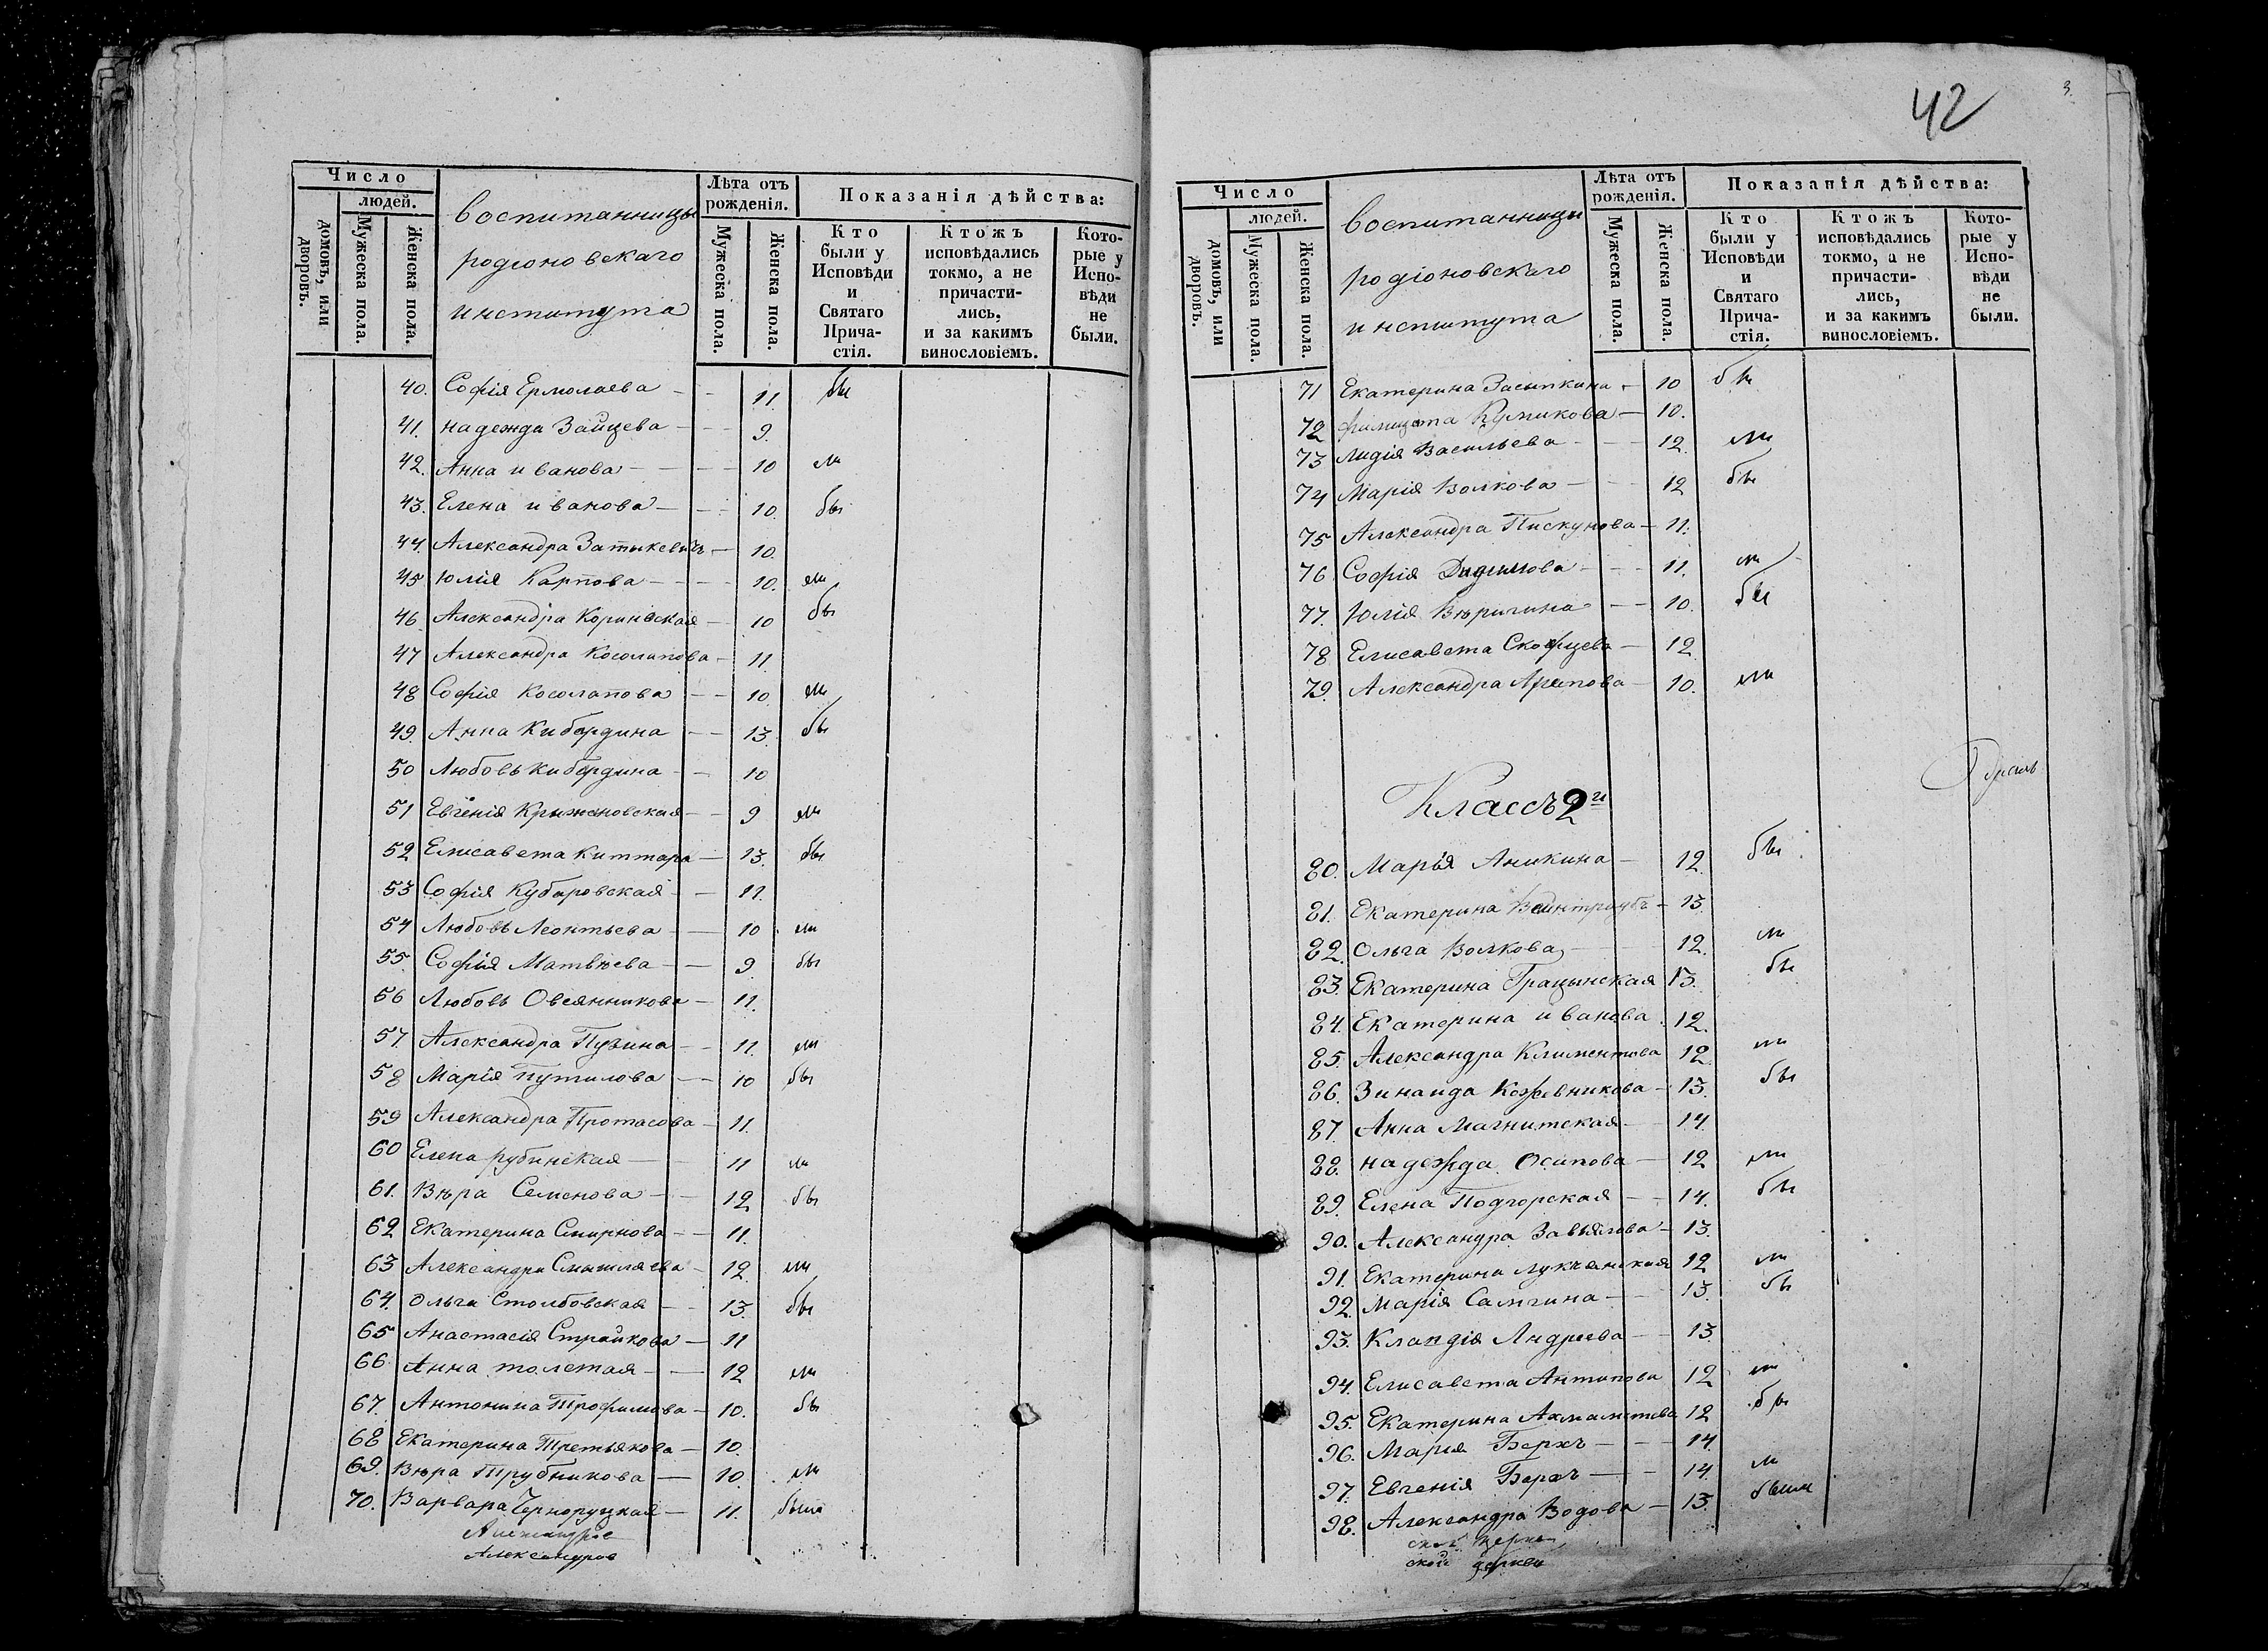 Число
людей.
домовъ, или дворовъ.
Мужеска пола.
Женска пола.
воспитанницы
родіоновскаго
института
Лѣта отъ рожденія.
Мужеска пола.
Женска пола.
Показанія дѣйства:
Кто были у Исповѣди и Святаго Прича-стія.
Ктожъ исповѣдались токмо, а не причасти-лись, и за какимъ винословіемъ.
Кото-рые у Испо-вѣди не были.
40. Софія Ермолаева 11. бы
41. надежда Зайцева 9.
42. Анна иванова 10 ли
43. Елена иванова 10. бы
44. Александра Затыкевичъ 10.
45 Юлія Карпова 10. ли
46. Александра Коринвская 10 бы
47 Александра Косолапова 11
48 Софія Косолапова 10. ли
49. Анна Кибардина 13. бы
50 Любовь Кибардина 10
51 Евгенія Крыжановская 9 ли
52 Елисавета Киттара 13. бы
53 Софія Кубаровская 11.
54 Любовь Леонтьева 10 ли
55. Софія Матвѣева 9. бы
56 Любовь Овсянникова 11.
57. Александра Пузина 11. ли
58 Марія Путилова 10 бы
59 Александра Протасова 11.
60 Елена рубинская 11 ли
61. Вѣра Семенова 12 бы
62 Екатерина Смирнова 11.
63 Александра Смышляева 12. ли
64. Ольга Столбовская 13. бы
65 Анастасія Страикова 11
66 Анна толстая 12 ли
67. Антонина Трофимова 10. бы
68 Екатерина Третьякова 10.
69. Вѣра Трубникова 10. ли
70. Варвара Черноруцкая 11. были
Александров
Александров
42
3.
Число
людей.
домовъ, или дворовъ.
Мужеска пола.
Женска пола.
воспитанницы
родіоновскаго
института
Лѣта отъ рожденія.
Мужеска пола.
Женска пола.
Показанія дѣйства:
Кто были у Исповѣди и Святаго Прича-стія.
Ктожъ исповѣдались токмо, а не причасти-лись, и за какимъ винословіемъ.
Кото-рые у Испо-вѣди не были.
71 Екатерина Засыпкина 10 бы
72 фелицата Кумикова 10.
73 Лидія Васильева 12. ли
74 Марія Волкова 12 бы
75 Александра Пискунова 11.
76. Софія 11. ли
77. Юлія Вѣригина 10. бы
78 Елисавета 12.
79. Александра Арапова 10. ли
Классъ 2й
80. Марья Аникина 12. бы
81. Екатерина Вейнтраубъ 13.
82. Ольга Волкова 12. ли
83. Екатерина Грацынская 13. бы
84. Екатерина иванова 12.
85. Александра Климентова 12. ли
86. Зинаида Кожевникова 13. бы
87. Анна Магнитская 14.
88. надежда Осипова 12 ли
89. Елена Подгорская 14. бы
90. Александра Завьялова 13.
91. Екатерина Лукчанская 12 ли
92. Марія Самгина 13. бы
93. Клавдія Андреева 13.
94. Елисавета Антипова 12 ли
95. Екатерина Ахмаметева 12 бы
96. Марія Берхъ 14.
97. Евгенія Берхъ 14. ли
98. Александра Водова 13. были
ской церкви
ской церкви